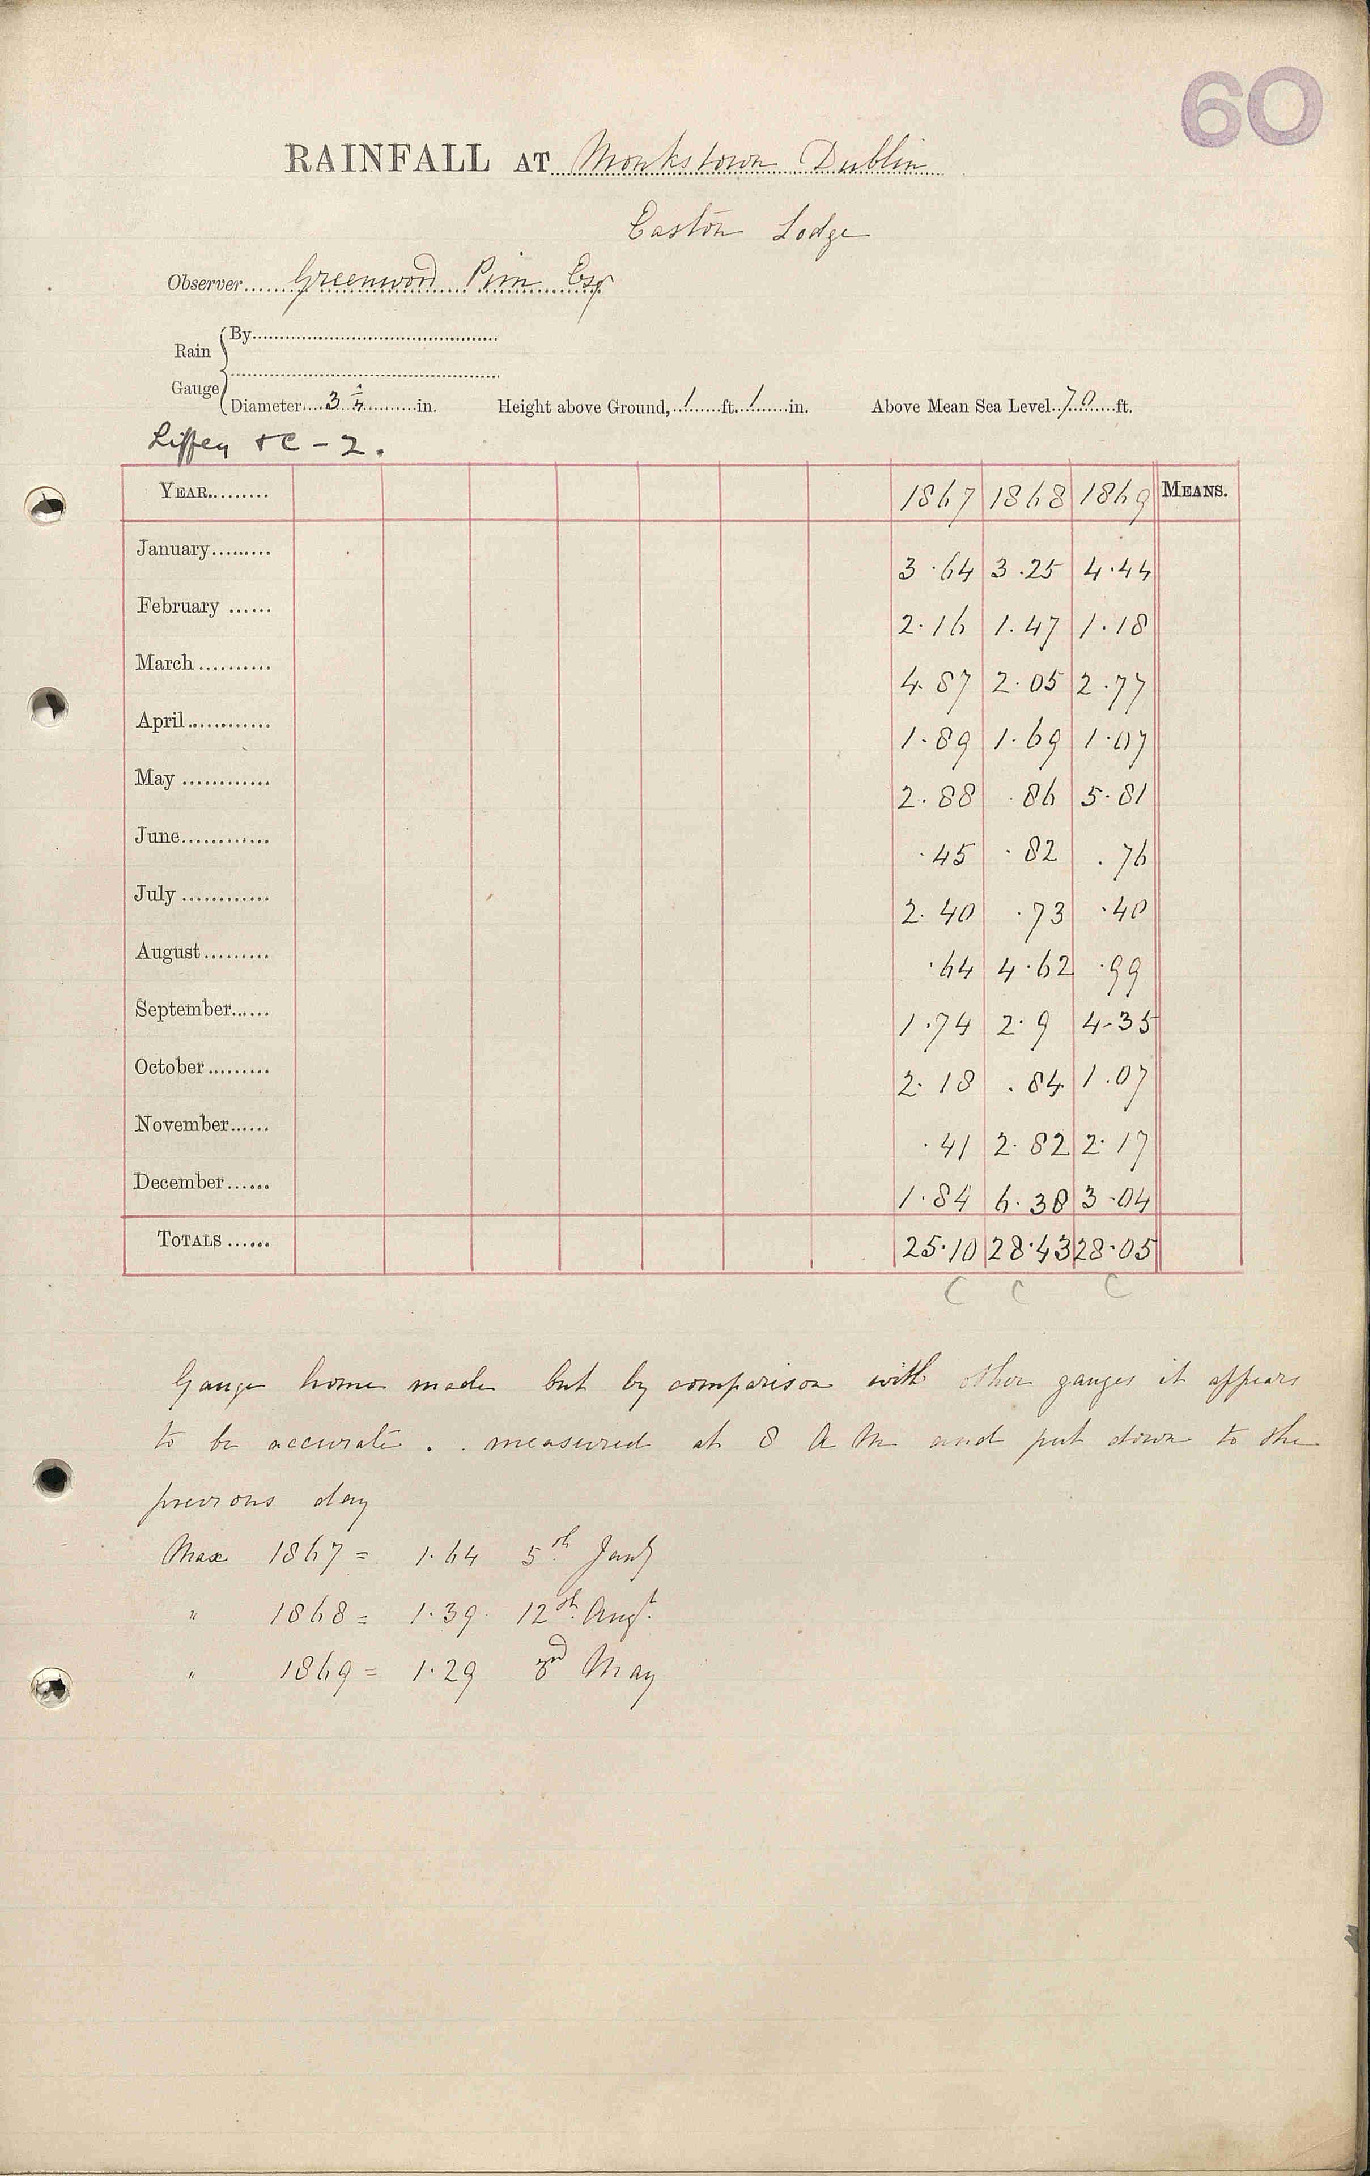 60
RAINFALL AT Monkstown Dublin
Easton Lodge
Observer Greenwood Pim Esq
Rain Gauge
By
Diameter 3 1/4 in. Height above Ground, 1 ft. 1 in. Above Mean Sea Level 70 ft.
Liffey &c - 2.
YEAR 1867 1868 1869 MEANS.
January 3.64 3.25 4.44
February 2.16 1.47 1.18
March 4.87 2.05 2.77
April 1.89 1.69 1.07
May 2.88 .86 5.81
June .45 .82 .76
July 2.40 .73 .40
August .64 4.62 .99
September 1.74 2.9 4.35
October 2.18 .84 1.07
November .41 2.82 2.17
December 1.84 6.38 3.04
TOTALS 25.10 28.43 28.05
C C C
Gauge home made but by comparison with other gauges it appears
to be accurate . . measured at 8 A M and put down to the
previous day
Max 1867 = 1.64 5th Jany
" 1868 = 1.39 12th Augt.
" 1869 = 1.29 May